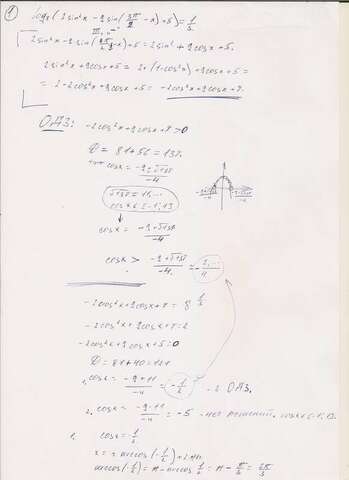 1
log₈(2sin²x - 9sin(3π/2 - x) + 5) = 1/3
2sin²x - 9sin(3π/2 - x) + 5 = 2sin²x + 9cosx + 5.
2sin²x + 9cosx + 5 = 2·(1-cos²x) + 9cosx + 5 =
= 2 - 2cos²x + 9cosx + 5 = -2cos²x + 9cosx + 7.
ОДЗ:
-2cos²x + 9cosx + 7 > 0
D = 81 + 56 = 137.
cosx = (-9 ± √137)/-4
√137 = 11,...
cosx ∈ [-1; 1]
cosx = (-9 + √137)/-4
cosx > (-9 + √137)/-4 = -2,.../4
-2cos²x + 9cosx + 7 = 8^(1/3)
-2cos²x + 9cosx + 7 = 2
-2cos²x + 9cosx + 5 = 0
D = 81 + 40 = 121
1. cosx = (-9 + 11)/-4 = -1/2 - ОДЗ.
2. cosx = (-9 - 11)/-4 = +5 - нет решений. cosx ∈ [-1; 1].
1. cosx = -1/2
x = ± arccos(-1/2) + 2πn.
arccos(-1/2) = π - arccos 1/2 = π - π/3 = 2π/3